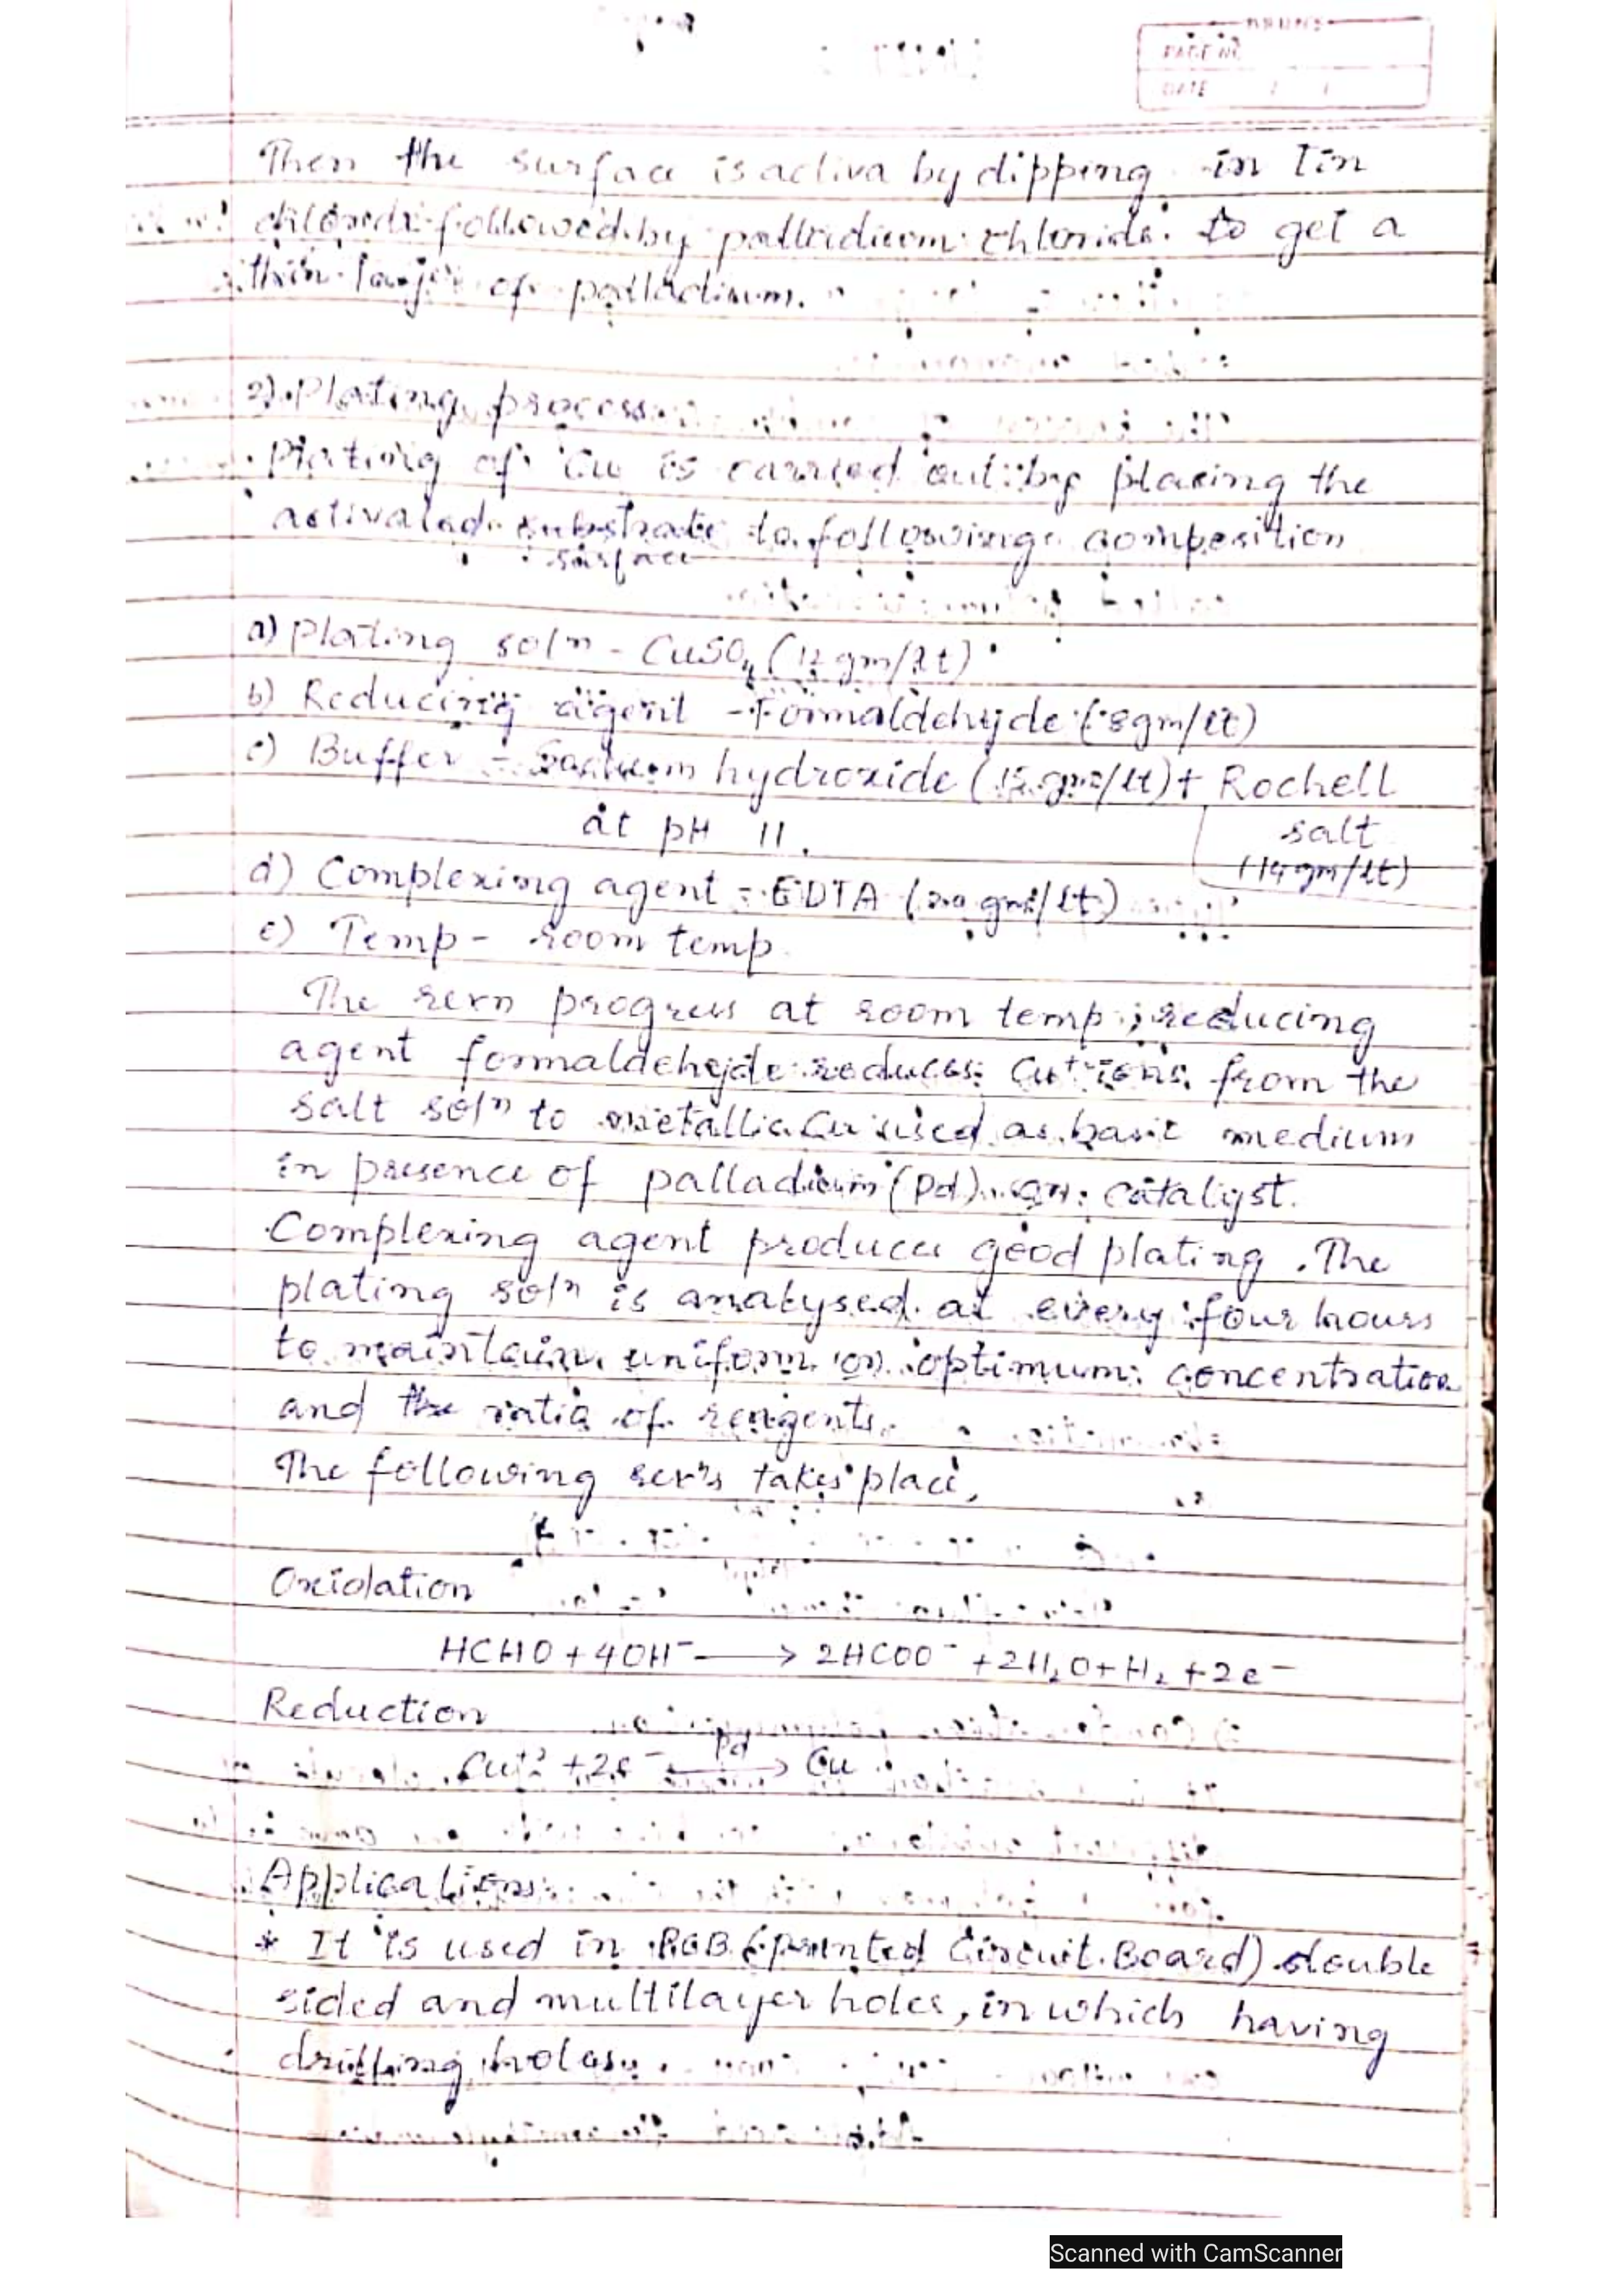 PAGE NO
DATE / /
Then the surface is activa by dipping in Tin
chloride followed by palladium chloride to get a
thin layer of palladium.
2) Plating process
Plating of Cu is carried out by placing the
activated substrate to following composition
surface
a) Plating solⁿ - CuSO₄ (12 gm/lt)
b) Reducing agent - Formaldehyde (8gm/lt)
c) Buffer - Sodium hydroxide (15 gms/lt) + Rochell
at pH 11. salt
(14 gm/lt)
d) Complexing agent = EDTA (20 gms/lt)
e) Temp - room temp.
The rexn progress at room temp; reducing
agent formaldehyde reduces Cu⁺ ions from the
salt solⁿ to metallic Cu used as basic medium
in presence of palladium (Pd) catalyst.
Complexing agent produces good plating. The
plating solⁿ is analysed at every four hours
to maintain uniform or optimum concentration
and the ratio of reagents.
The following rexⁿs takes place,
Oxidation
HCHO + 4OH⁻ ⟶ 2HCOO⁻ + 2H₂O + H₂ + 2e⁻
Reduction
Pd
Cu⁺² + 2e⁻ ⟶ Cu
Applications:
* It is used in PCB (printed Circuit Board) double
sided and multilayer holes, in which having
drilling holes.
Scanned with CamScanner